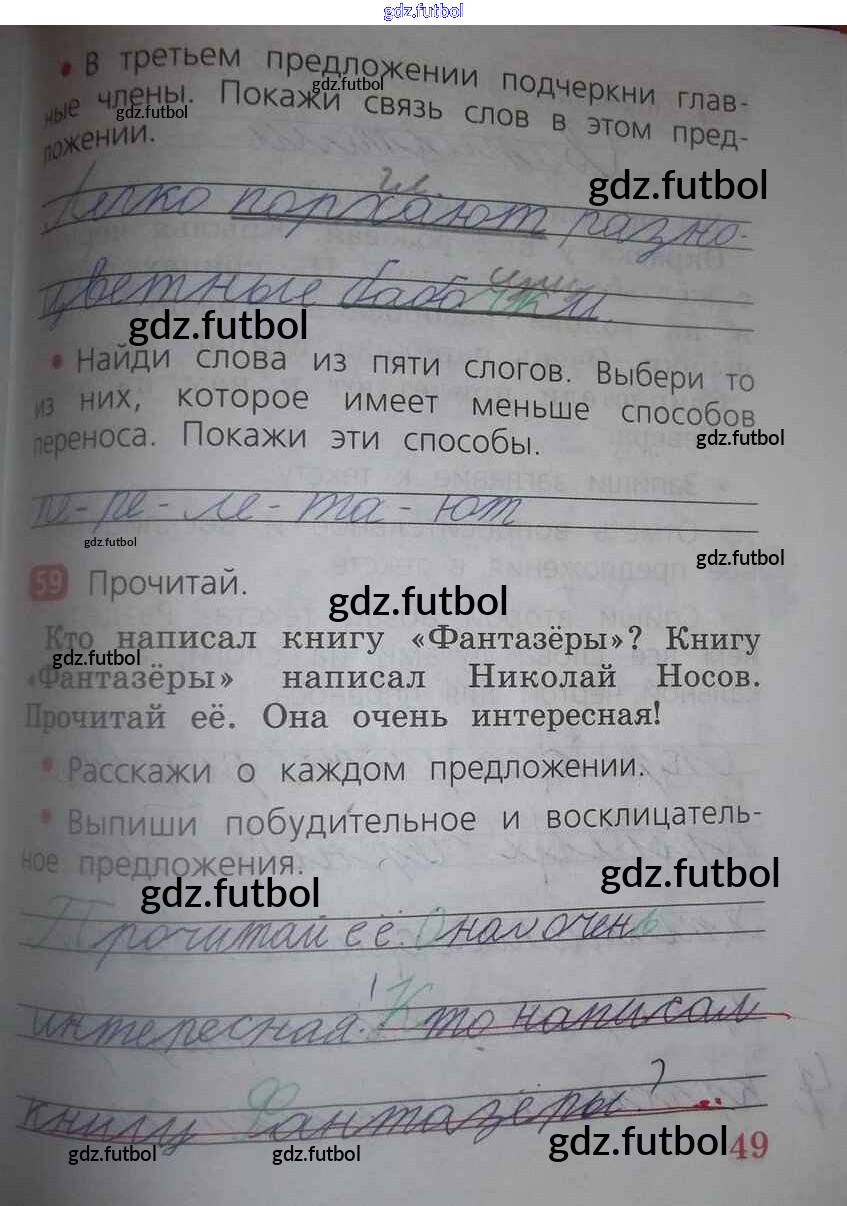 gdz.futbol
• В третьем предложении подчеркни глав-
ные члены. Покажи связь слов в этом пред-
ложении.
gdz.futbol
gdz.futbol
гл.
gdz.futbol
Легко порхают разно-
цветные бабочки.
gdz.futbol
• Найди слова из пяти слогов. Выбери то
из них, которое имеет меньше способов
переноса. Покажи эти способы.
gdz.futbol
пе-ре-ле-та-ют
gdz.futbol
gdz.futbol
59 Прочитай.
gdz.futbol
Кто написал книгу «Фантазёры»? Книгу
gdz.futbol
«Фантазёры» написал Николай Носов.
Прочитай её. Она очень интересная!
• Расскажи о каждом предложении.
• Выпиши побудительное и восклицатель-
ное предложения.
gdz.futbol
gdz.futbol
Прочитай её. Она очень
интересная! Кто написал
книгу Фантазёры?
gdz.futbol
gdz.futbol
gdz.futbol
49